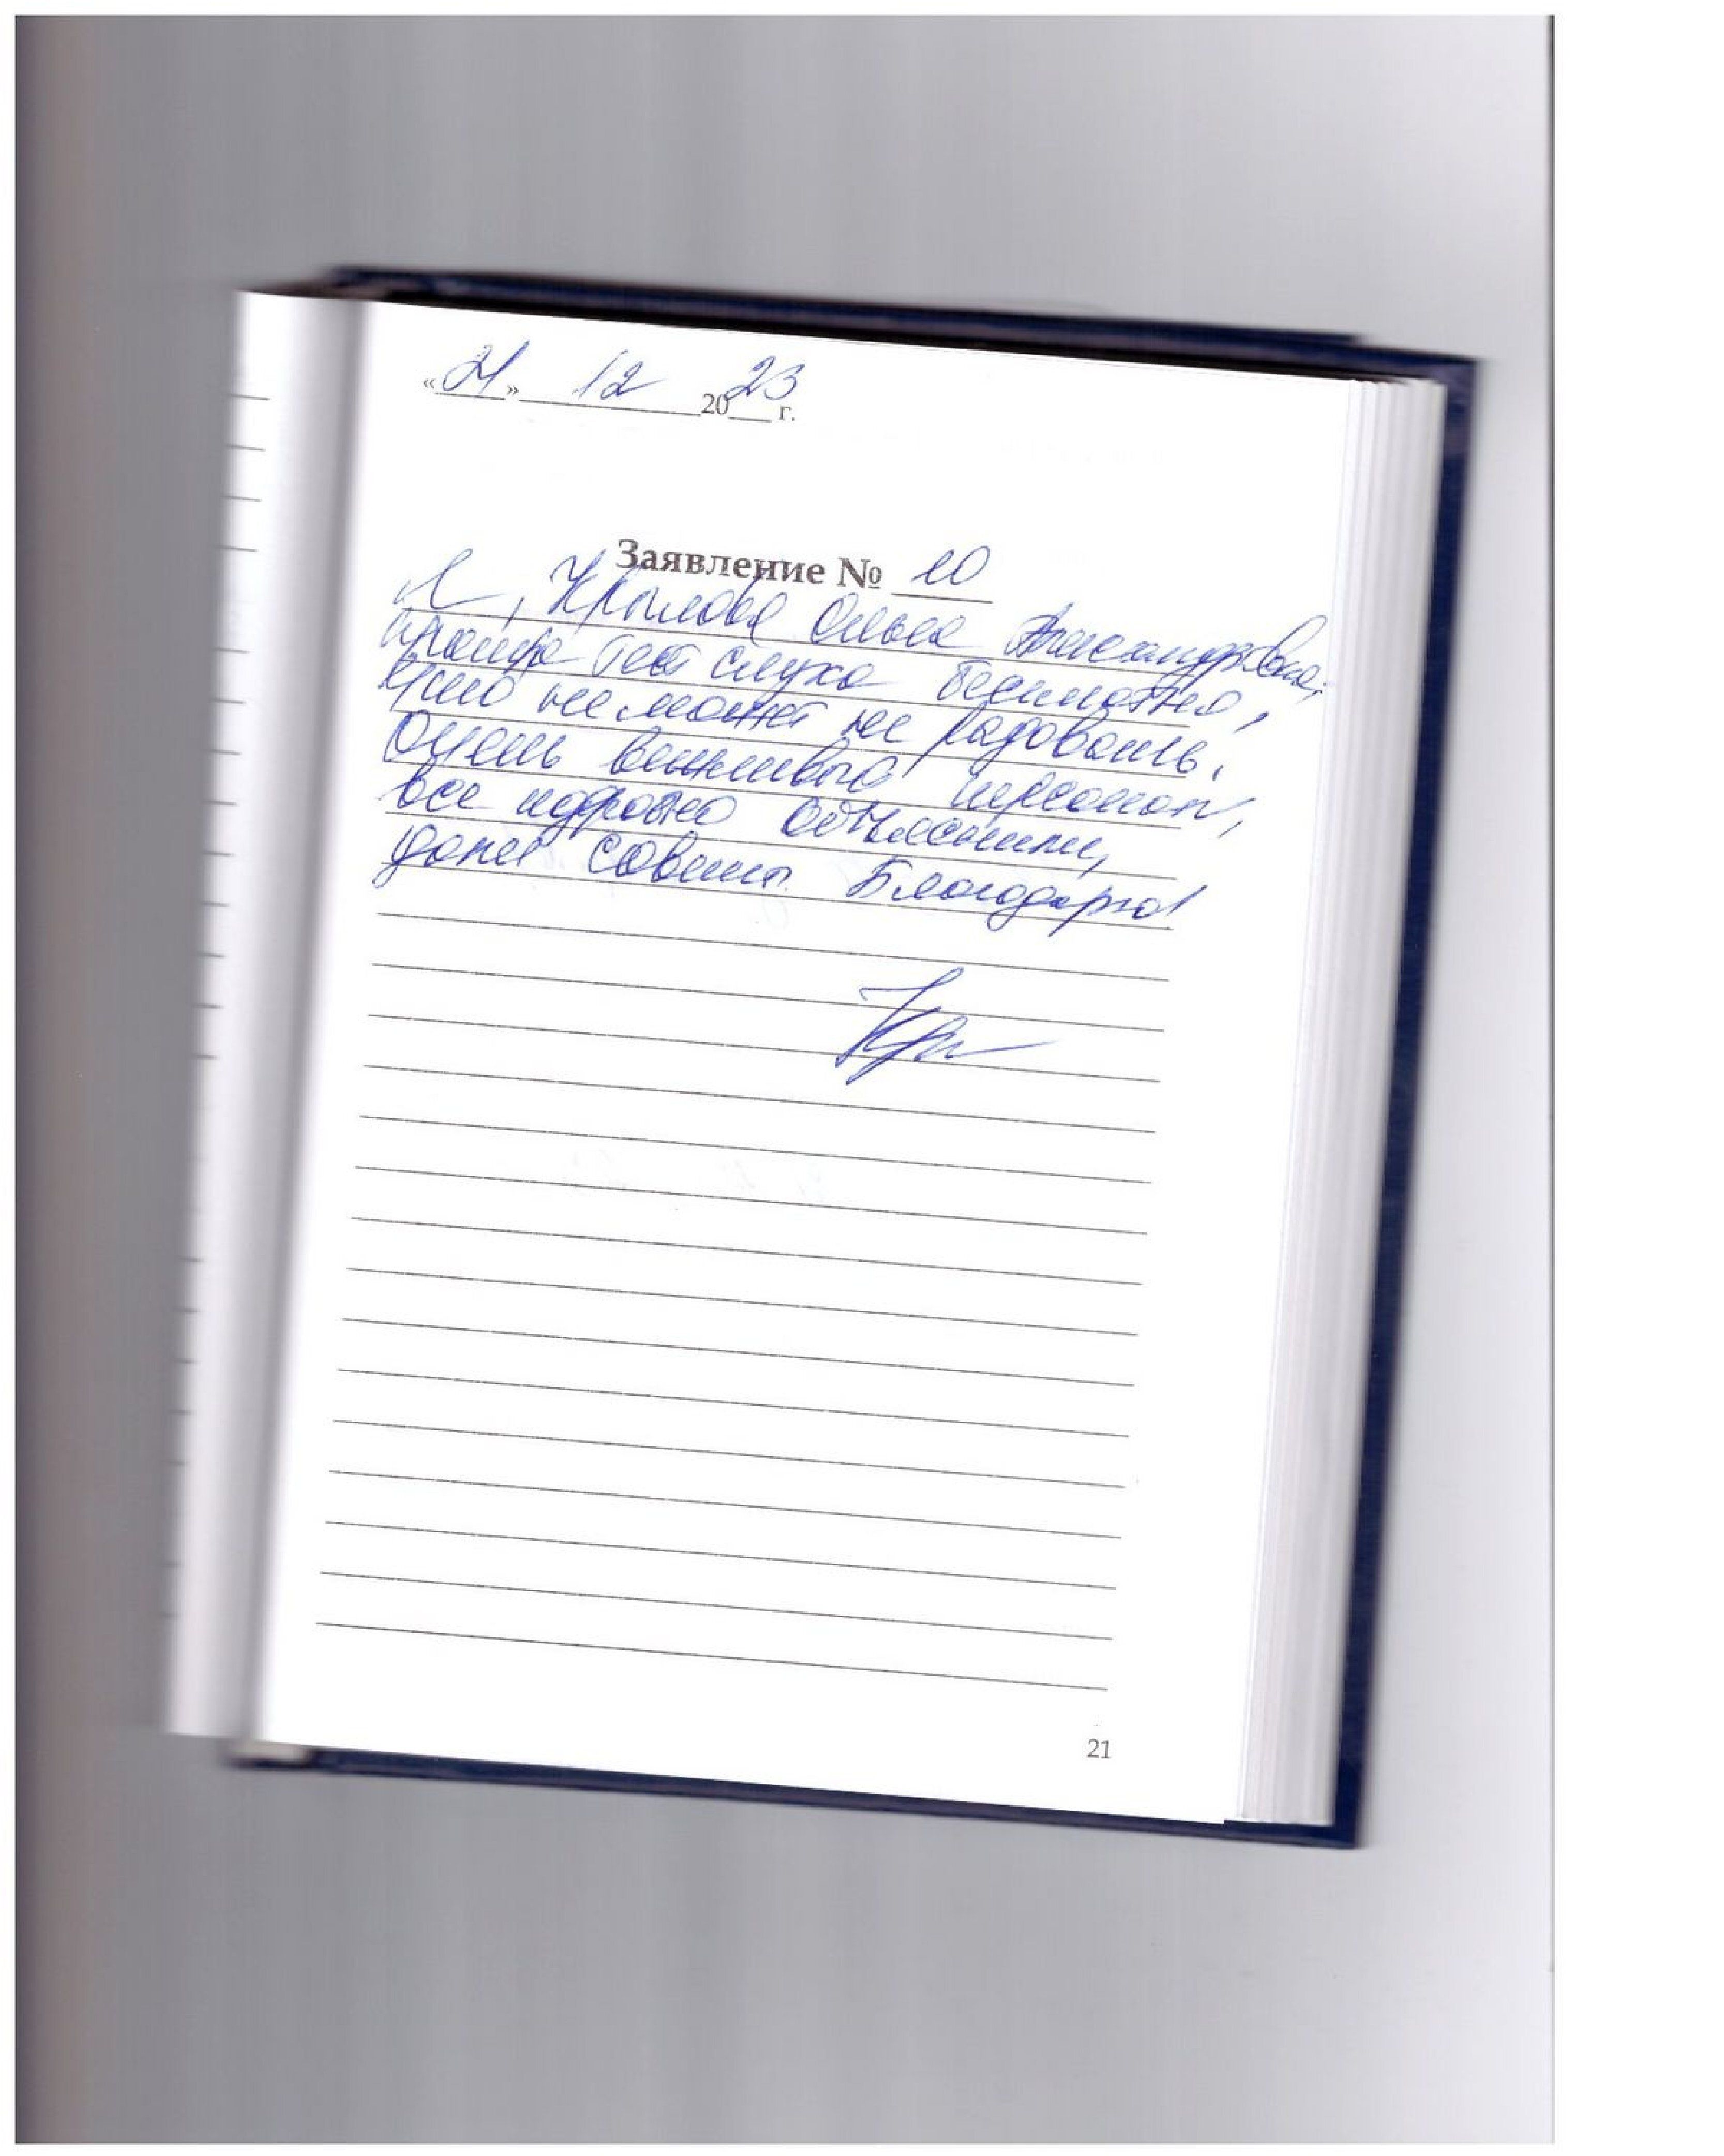 «21» 12 2023 г.
Заявление № 10
Я, Крылова Ольга Александровна,
прошла тест слуха бесплатно,
что не может не радовать.
Очень вежливый персонал,
все подробно объяснили,
дали советы. Благодарю!
21